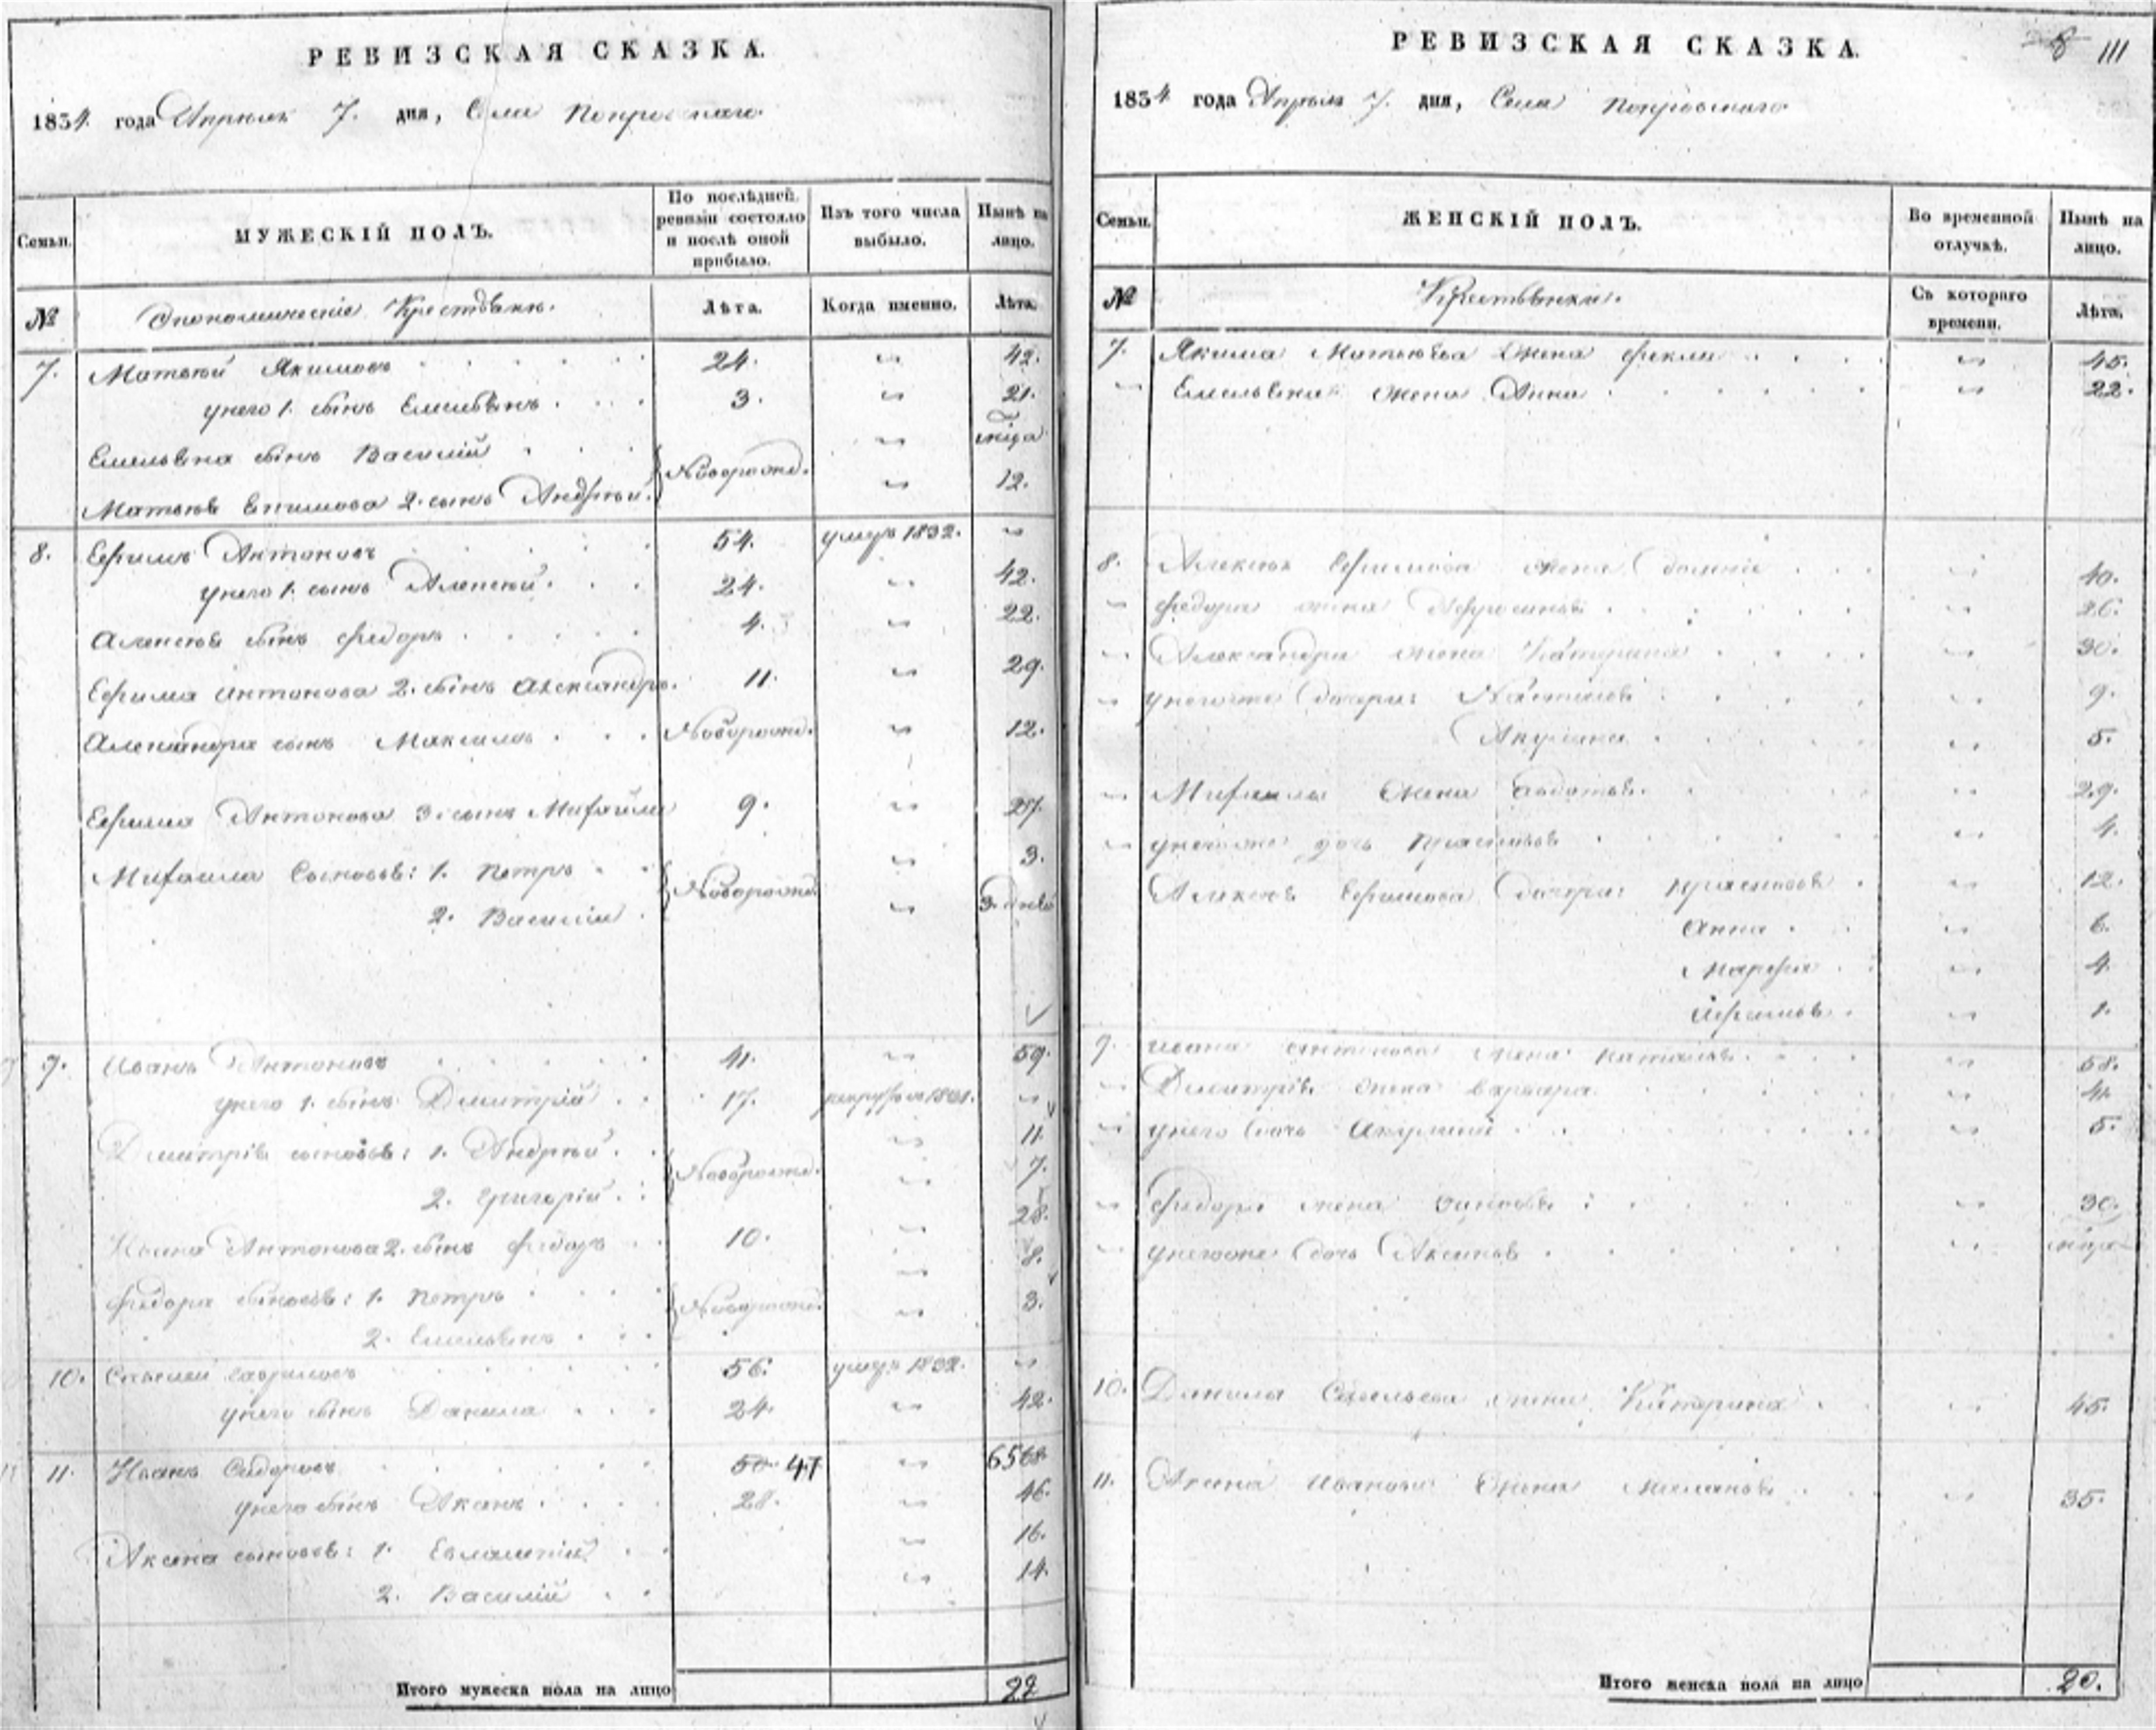 РЕВИЗСКАЯ СКАЗКА.
1834. года Апреля 7. дня, Села Покровскаго
Семьи.
МУЖЕСКІЙ ПОЛЪ.
По послѣдней ревизіи состояло и послѣ оной прибыло.
Изъ того числа выбыло.
Нынѣ на лицо.
№ Экономическіе Крестьяне. Лѣта. Когда именно. Лѣта.
7. Матвей Якимовъ 24. 42.
у него 1. сынъ Емельянъ 3. 21.
Емельяна сынъ Василій Новорожд.
Матвея 2. сынъ Андрей 12.
8. Ефимъ Антоновъ 54. умеръ 1832.
у него 1. сынъ Алексей 24. 42.
Алексея сынъ Федоръ 4. 22.
Ефима Антонова 2. сынъ Александръ. 11. 29.
Александра сынъ Максимъ Новорожд. 12.
Ефима Антонова 3. сынъ Михайла 9. 27.
Михаила Сыновья: 1. Петръ Новорожд. 3.
2. Василій 3. дней
9. Иванъ Антоновъ 41. 59.
у него 1. сынъ Дмитрій 17.
Дмитрія сыновья: 1. Андрей Новорожд. 11
2. Григорій 7.
Ивана Антонова 2. сынъ Федоръ 10. 28.
Федора сыновья: 1. Петръ Новорожд. 8.
2. Емельянъ 3.
10. Савелей Гавриловъ 56. умеръ 1832.
у него сынъ Данила 24. 42.
11. Иванъ Сидоровъ 50. 47 65 68.
у него сынъ Аксенъ 28. 46.
Аксена сыновья: 1. Евлампій 16.
2. Василій 14.
Итого мужеска пола на лицо 22
РЕВИЗСКАЯ СКАЗКА.
8 111
1834. года Апреля 7. дня, Села Покровскаго
Семьи.
ЖЕНСКІЙ ПОЛЪ.
Во временной отлучкѣ.
Нынѣ на лицо.
№ Крестьянки. Съ котораго времени. Лѣта.
7. Якима Матвеева жена Фекла 45.
Емельяна жена Анна 22.
8. Алексея Ефимова жена 40.
Федора жена Афросинья 26.
Александра жена Катерина 30.
у него же дочери: Настасья 9.
Акулина 5.
Михаила жена Авдотья. 29.
у него же дочь Прасковья 4.
Алексея Ефимова дочери: Прасковья 12.
Анна 6.
Марфа 4.
1.
9. Ивана Антонова жена Наталья. 58.
Дмитрія жена Варвара 41.
у него дочь Акулина 5.
Федора жена 30.
у него же дочь Аксинья
10. Данила Савельева жена Катерина 45.
11. Аксена Иванова жена Меланья 35.
Итого женска пола на лицо 20.